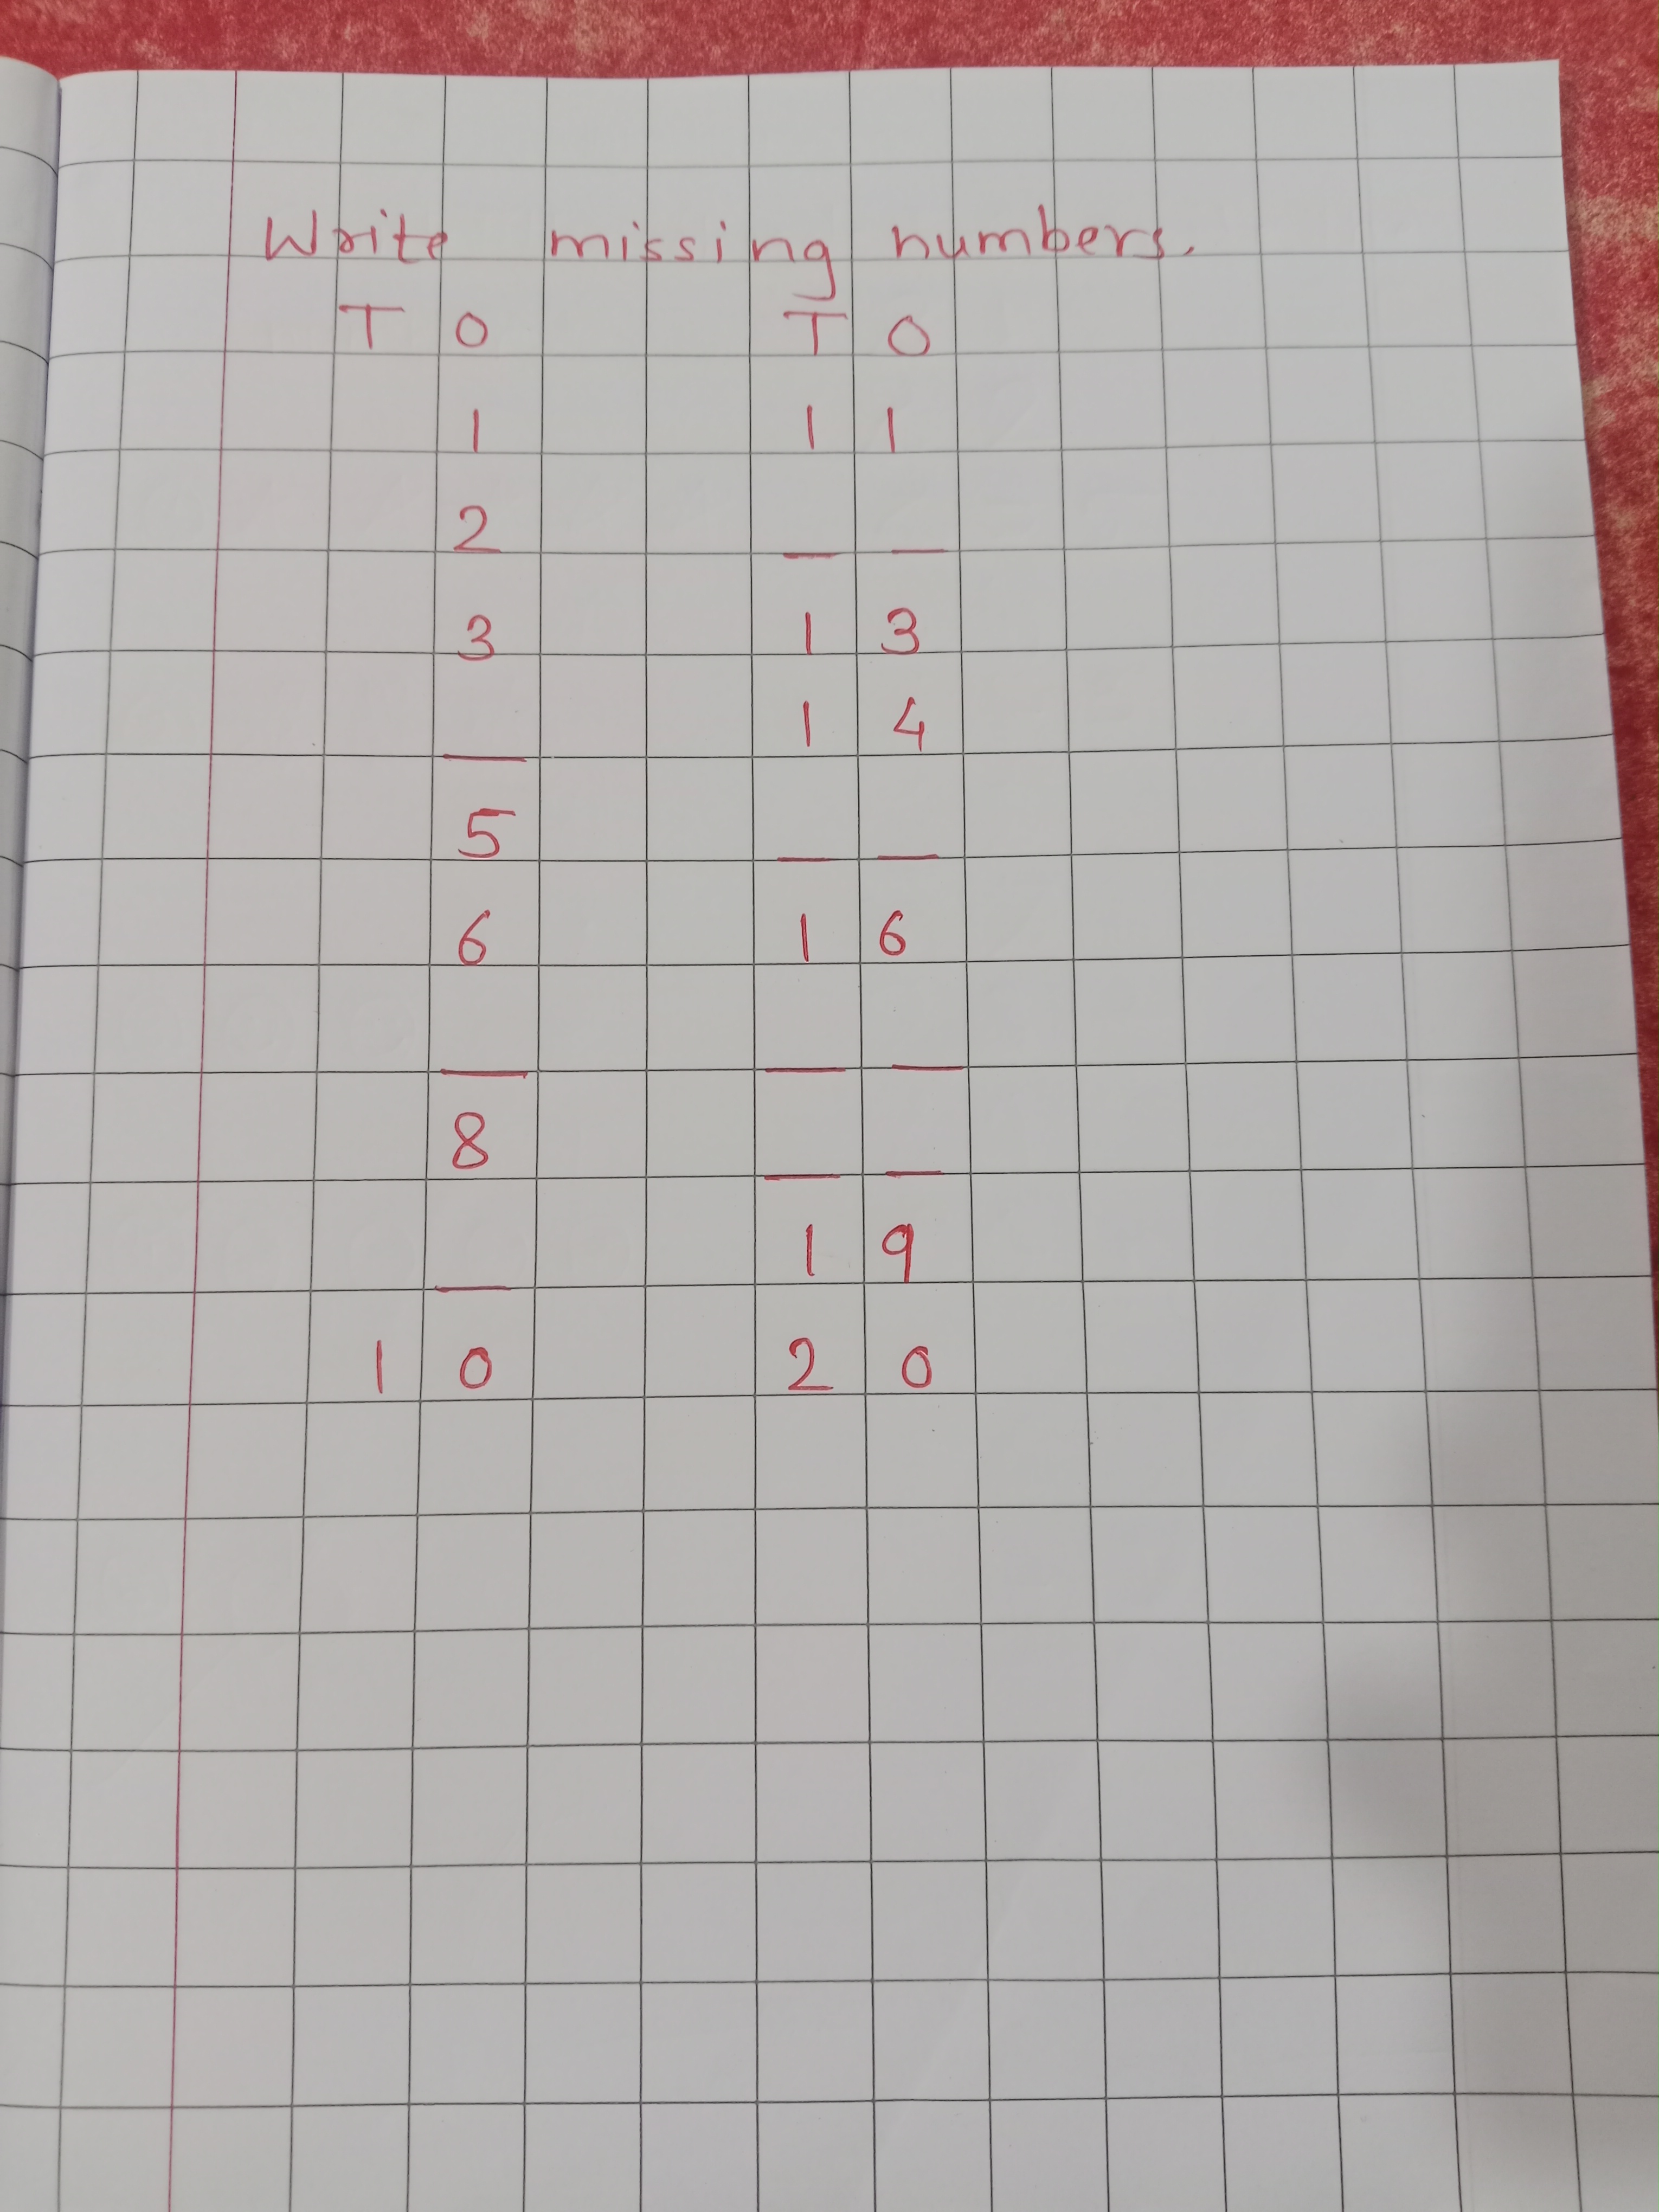 Write missing numbers.
T O T O
1 1 1
2 _ _
3 1 3
_ 1 4
5 _ _
6 1 6
_ _ _
8 _ _
_ 1 9
1 0 2 0